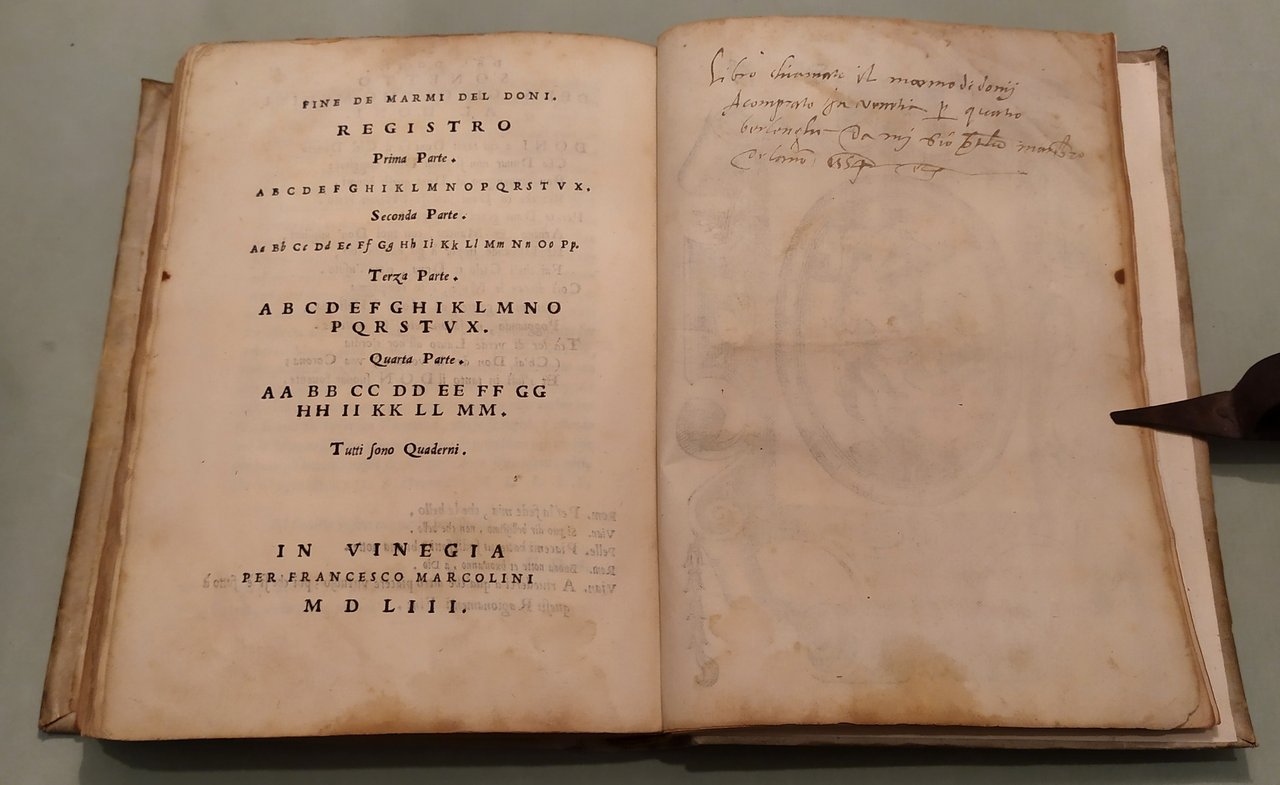 FINE DE MARMI DEL DONI.
REGISTRO
Prima Parte.
A B C D E F G H I K L M N O P Q R S T V X.
Seconda Parte.
Aa Bb Cc Dd Ee Ff Gg Hh Ii Kk Ll Mm Nn Oo Pp.
Terza Parte.
A B C D E F G H I K L M N O
P Q R S T V X.
Quarta Parte.
AA BB CC DD EE FF GG
HH II KK LL MM.
Tutti sono Quaderni.
IN VINEGIA
PER FRANCESCO MARCOLINI
M D LIII.
Libro chiamato il
Acomprato in venetia p quatro
da mi
1554